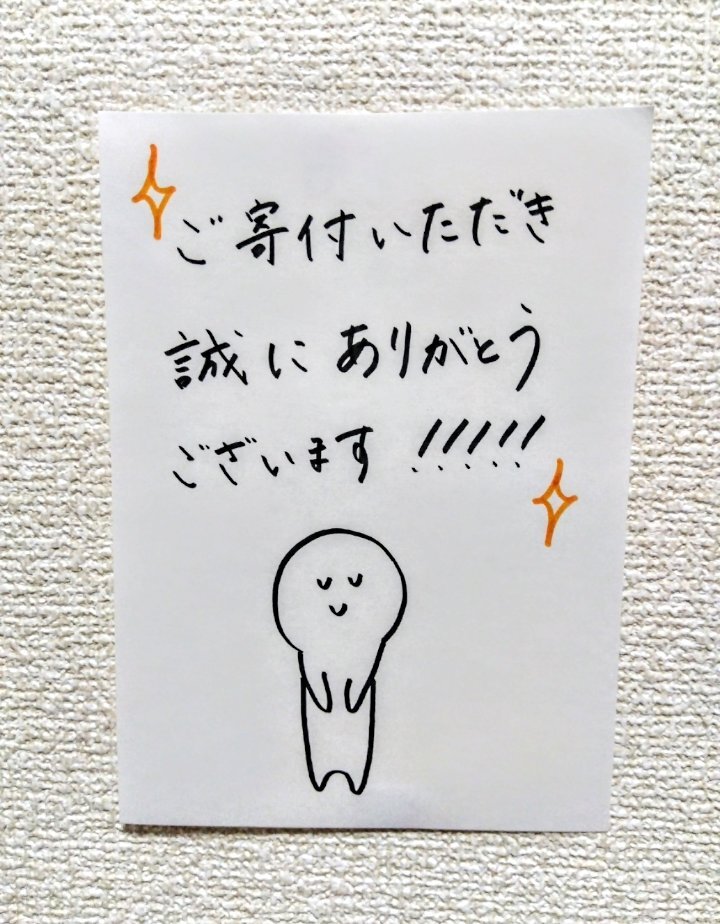 ご寄付いただき
誠にありがとう
ございます!!!!!